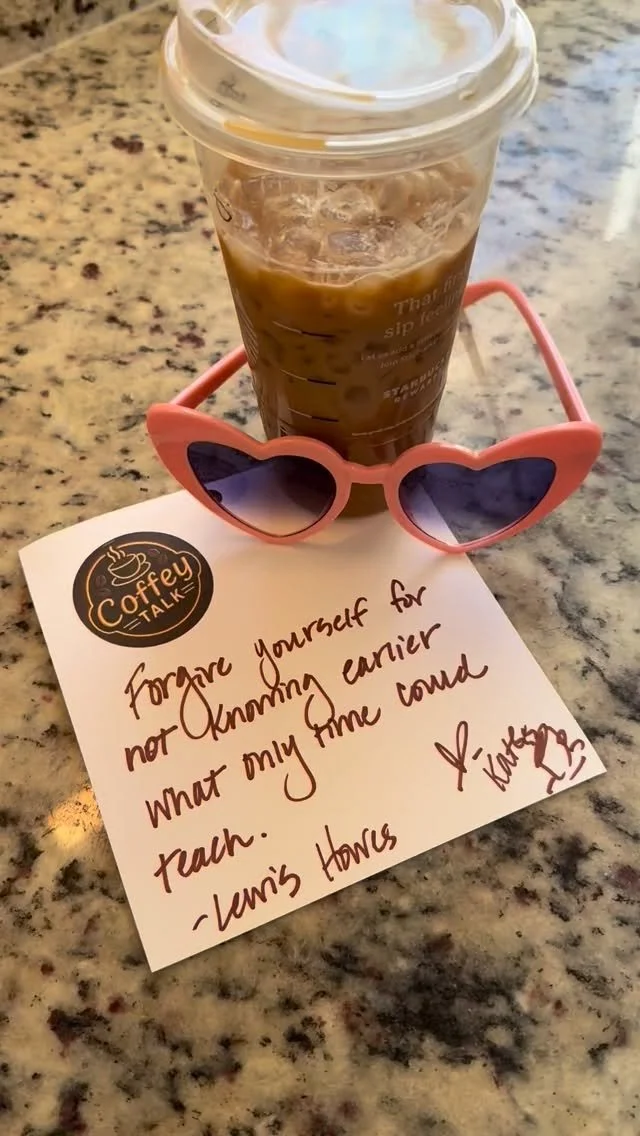 That first
sip feeling
STARBUCKS
REWARDS
Coffey
TALK
Forgive yourself for
not knowing earlier
what only time could
teach.
~Lewis Howes